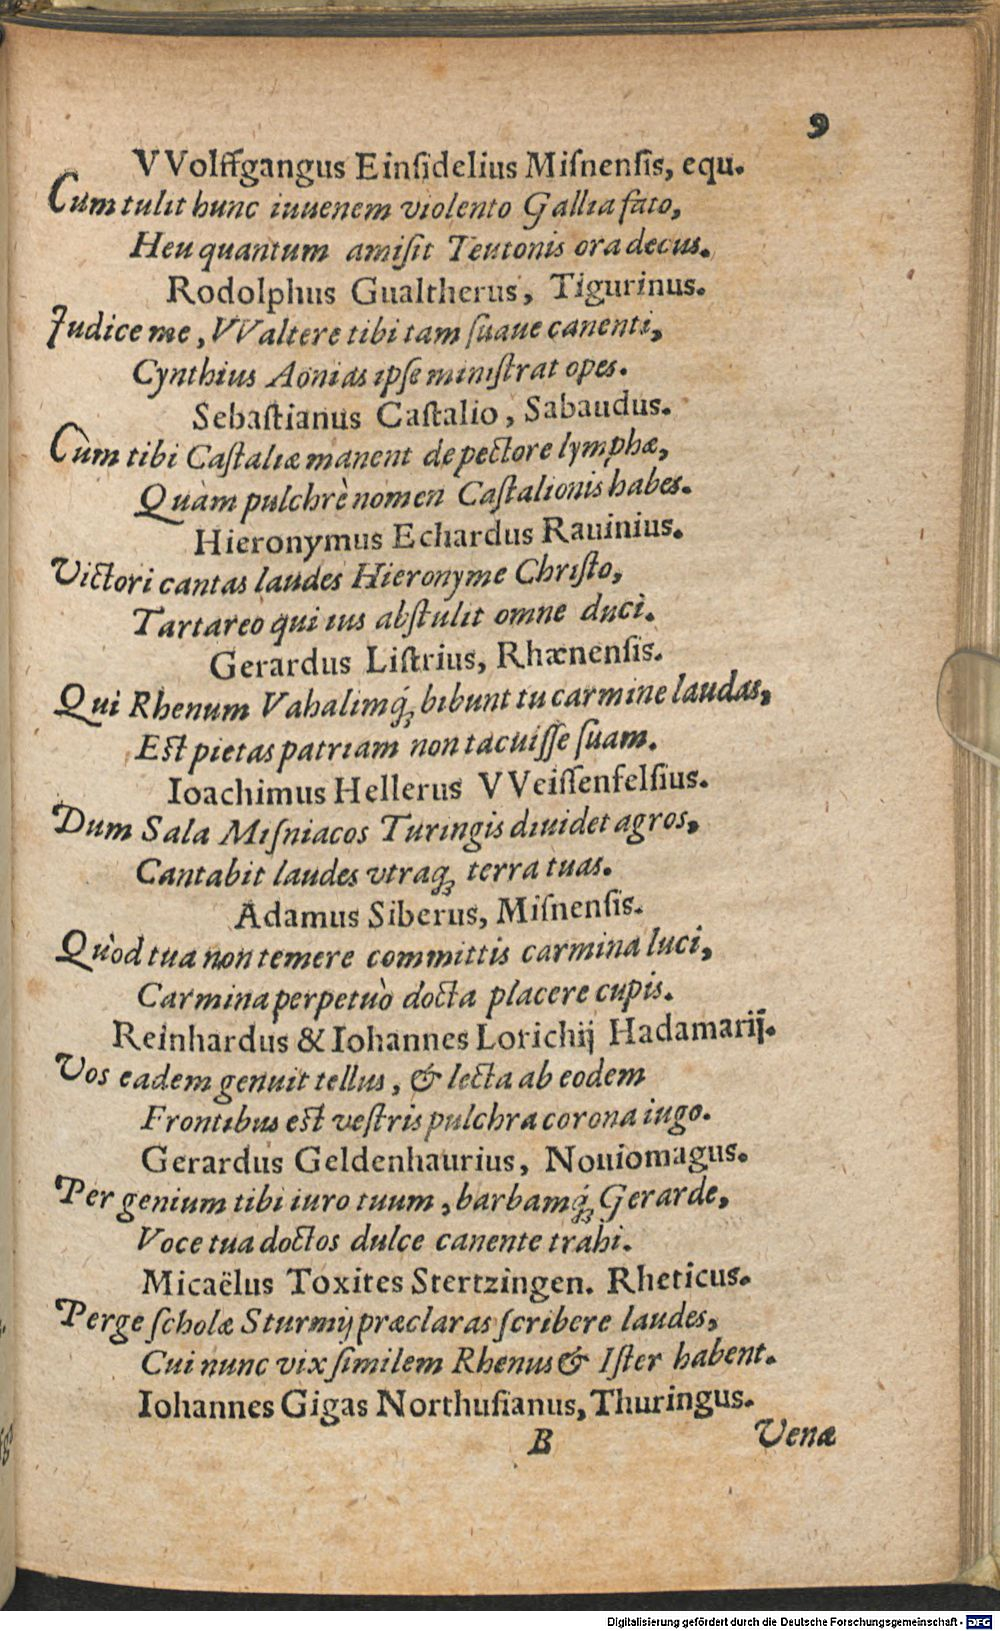 9
VVolffgangus Einſidelius Miſnenſis, equ.
Cum tulit hunc iuuenem violento Gallia fato,
Heu quantum amiſit Teutonis ora decus.
Rodolphus Gualtherus, Tigurinus.
Iudice me, VValtere tibi tam ſuaue canenti,
Cynthius Aonias ipſe miniſtrat opes.
Sebaſtianus Caſtalio, Sabaudus.
Cùm tibi Caſtaliæ manent de pectore lymphæ,
Quàm pulchrè nomen Caſtalionis habes.
Hieronymus Echardus Rauinius.
Victori cantas laudes Hieronyme Chriſto,
Tartareo qui ius abſtulit omne duci.
Gerardus Liſtrius, Rhænenſis.
Qui Rhenum Vahalimq́; bibunt tu carmine laudas,
Eſt pietas patriam non tacuiſſe ſuam.
Ioachimus Hellerus VVeiſſenfelſius.
Dum Sala Miſniacos Turingis diuidet agros,
Cantabit laudes vtraq; terra tuas.
Adamus Siberus, Miſnenſis.
Quòd tua non temere committis carmina luci,
Carmina perpetuò docta placere cupis.
Reinhardus & Iohannes Lorichij Hadamarij.
Vos eadem genuit tellus, & lecta ab eodem
Frontibus eſt veſtris pulchra corona iugo.
Gerardus Geldenhaurius, Nouiomagus.
Per genium tibi iuro tuum, barbamq́; Gerarde,
Voce tua doctos dulce canente trahi.
Micaëlus Toxites Stertzingen. Rheticus.
Perge ſcholæ Sturmij præclaras ſcribere laudes,
Cui nunc vix ſimilem Rhenus & Iſter habent.
Iohannes Gigas Northuſianus, Thuringus.
B Venæ
Digitalisierung gefördert durch die Deutsche Forschungsgemeinschaft - DFG